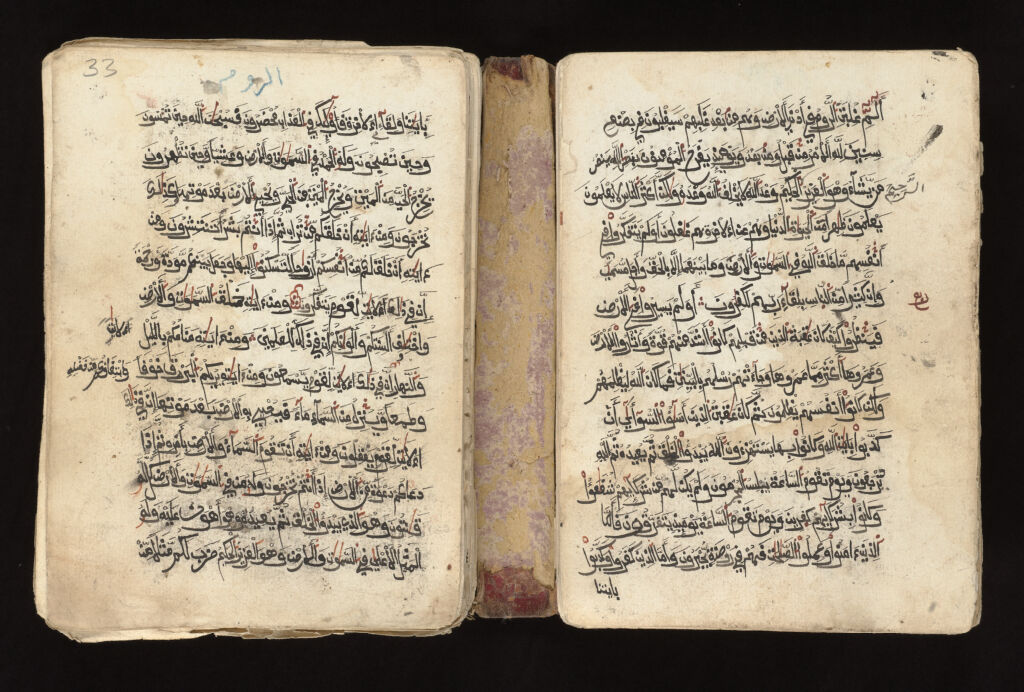 الم غلبت الروم في أدنى الارض وهم من بعد غلبهم سيغلبون في بضع
سنين لله الامر من قبل ومن بعد ويومئذ يفرح المومنون بنصر الله ينصر
من يشاء وهو العزيز الحكيم وعد الله لا يخلف الله وعده ولكن أكثر الناس لا يعلمون
الرحيم
يعلمون ظهرا من الحيوة الدنيا وهم عن الاخرة هم غفلون اولم يتفكروا في
أنفسهم ما خلق الله السموت والارض وما بينهما الا بالحق واجل مسمى
وان كثيرا من الناس بلقاء ربهم لكفرون اولم يسيروا في الارض
فينظروا كيف كان عقبة الذين من قبلهم كانوا أشد منهم قوة وأثاروا الارض
وعمروها أكثر مما عمروها وجاءتهم رسلهم بالبينت فما كان الله ليظلمهم
ولكن كانوا أنفسهم يظلمون ثم كان عقبة الذين أسئوا السوأى أن
كذبوا بايت الله وكانوا بها يستهزءون الله يبدؤا الخلق ثم يعيده ثم إليه
ترجعون ويوم تقوم الساعة يبلس المجرمون ولم يكن لهم من شركائهم شفعؤا
وكانوا بشركائهم كفرين ويوم تقوم الساعة يومئذ يتفرقون فأما
الذين ءامنوا وعملوا الصلحت فهم في روضة يحبرون وأما الذين كفروا وكذبوا
بايتنا
33
الروم
بايتنا ولقاء الاخرة فأولئك في العذاب محضرون فسبحن الله حين تمسون
وحين تصبحون وله الحمد في السموت والارض وعشيا وحين تظهرون
يخرج الحي من الميت ويخرج الميت من الحي ويحي الارض بعد موتها وكذلك
تخرجون ومن ءايته أن خلقكم من تراب ثم إذا أنتم بشر تنتشرون ومن
ءايته أن خلق لكم من أنفسكم أزوجا لتسكنوا إليها وجعل بينكم مودة ورحمة
إن في ذلك لايت لقوم يتفكرون ومن ءايته خلق السموت والارض
واختلف ألسنتكم وألونكم إن في ذلك للعلمين ومن ءايته منامكم باليل
لايت
والنهار إن في ذلك لايت لقوم يسمعون ومن ءايته يريكم البرق خوفا
وابتغاؤكم من فضله
وطمعا وينزل من السماء ماء فيحيي به الارض بعد موتها إن في ذلك
لايت لقوم يعقلون ومن ءايته أن تقوم السماء والارض بأمره ثم إذا
دعاكم دعوة من الارض إذا أنتم تخرجون وله من في السموت والارض كل له
قنتون وهو الذي يبدؤا الخلق ثم يعيده وهو أهون عليه وله
المثل الاعلى في السموت والارض وهو العزيز الحكيم ضرب لكم مثلا من